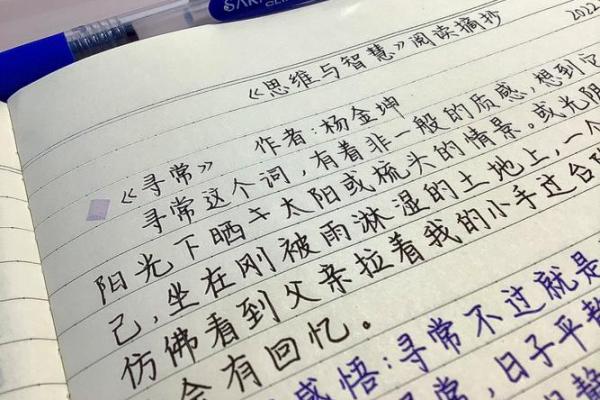 SAR
《思维与智慧》阅读摘抄 2022
《寻常》 作者:杨金坤
寻常这个词,有着非一般的质感,想到它
阳光下晒午太阳或梳头的情景。或光阴
己,坐在刚被雨淋湿的土地上,一个
仿佛看到父亲拉着我的小手过台阶
会有回忆。
感悟:寻常不过就是
寻常,日子平静